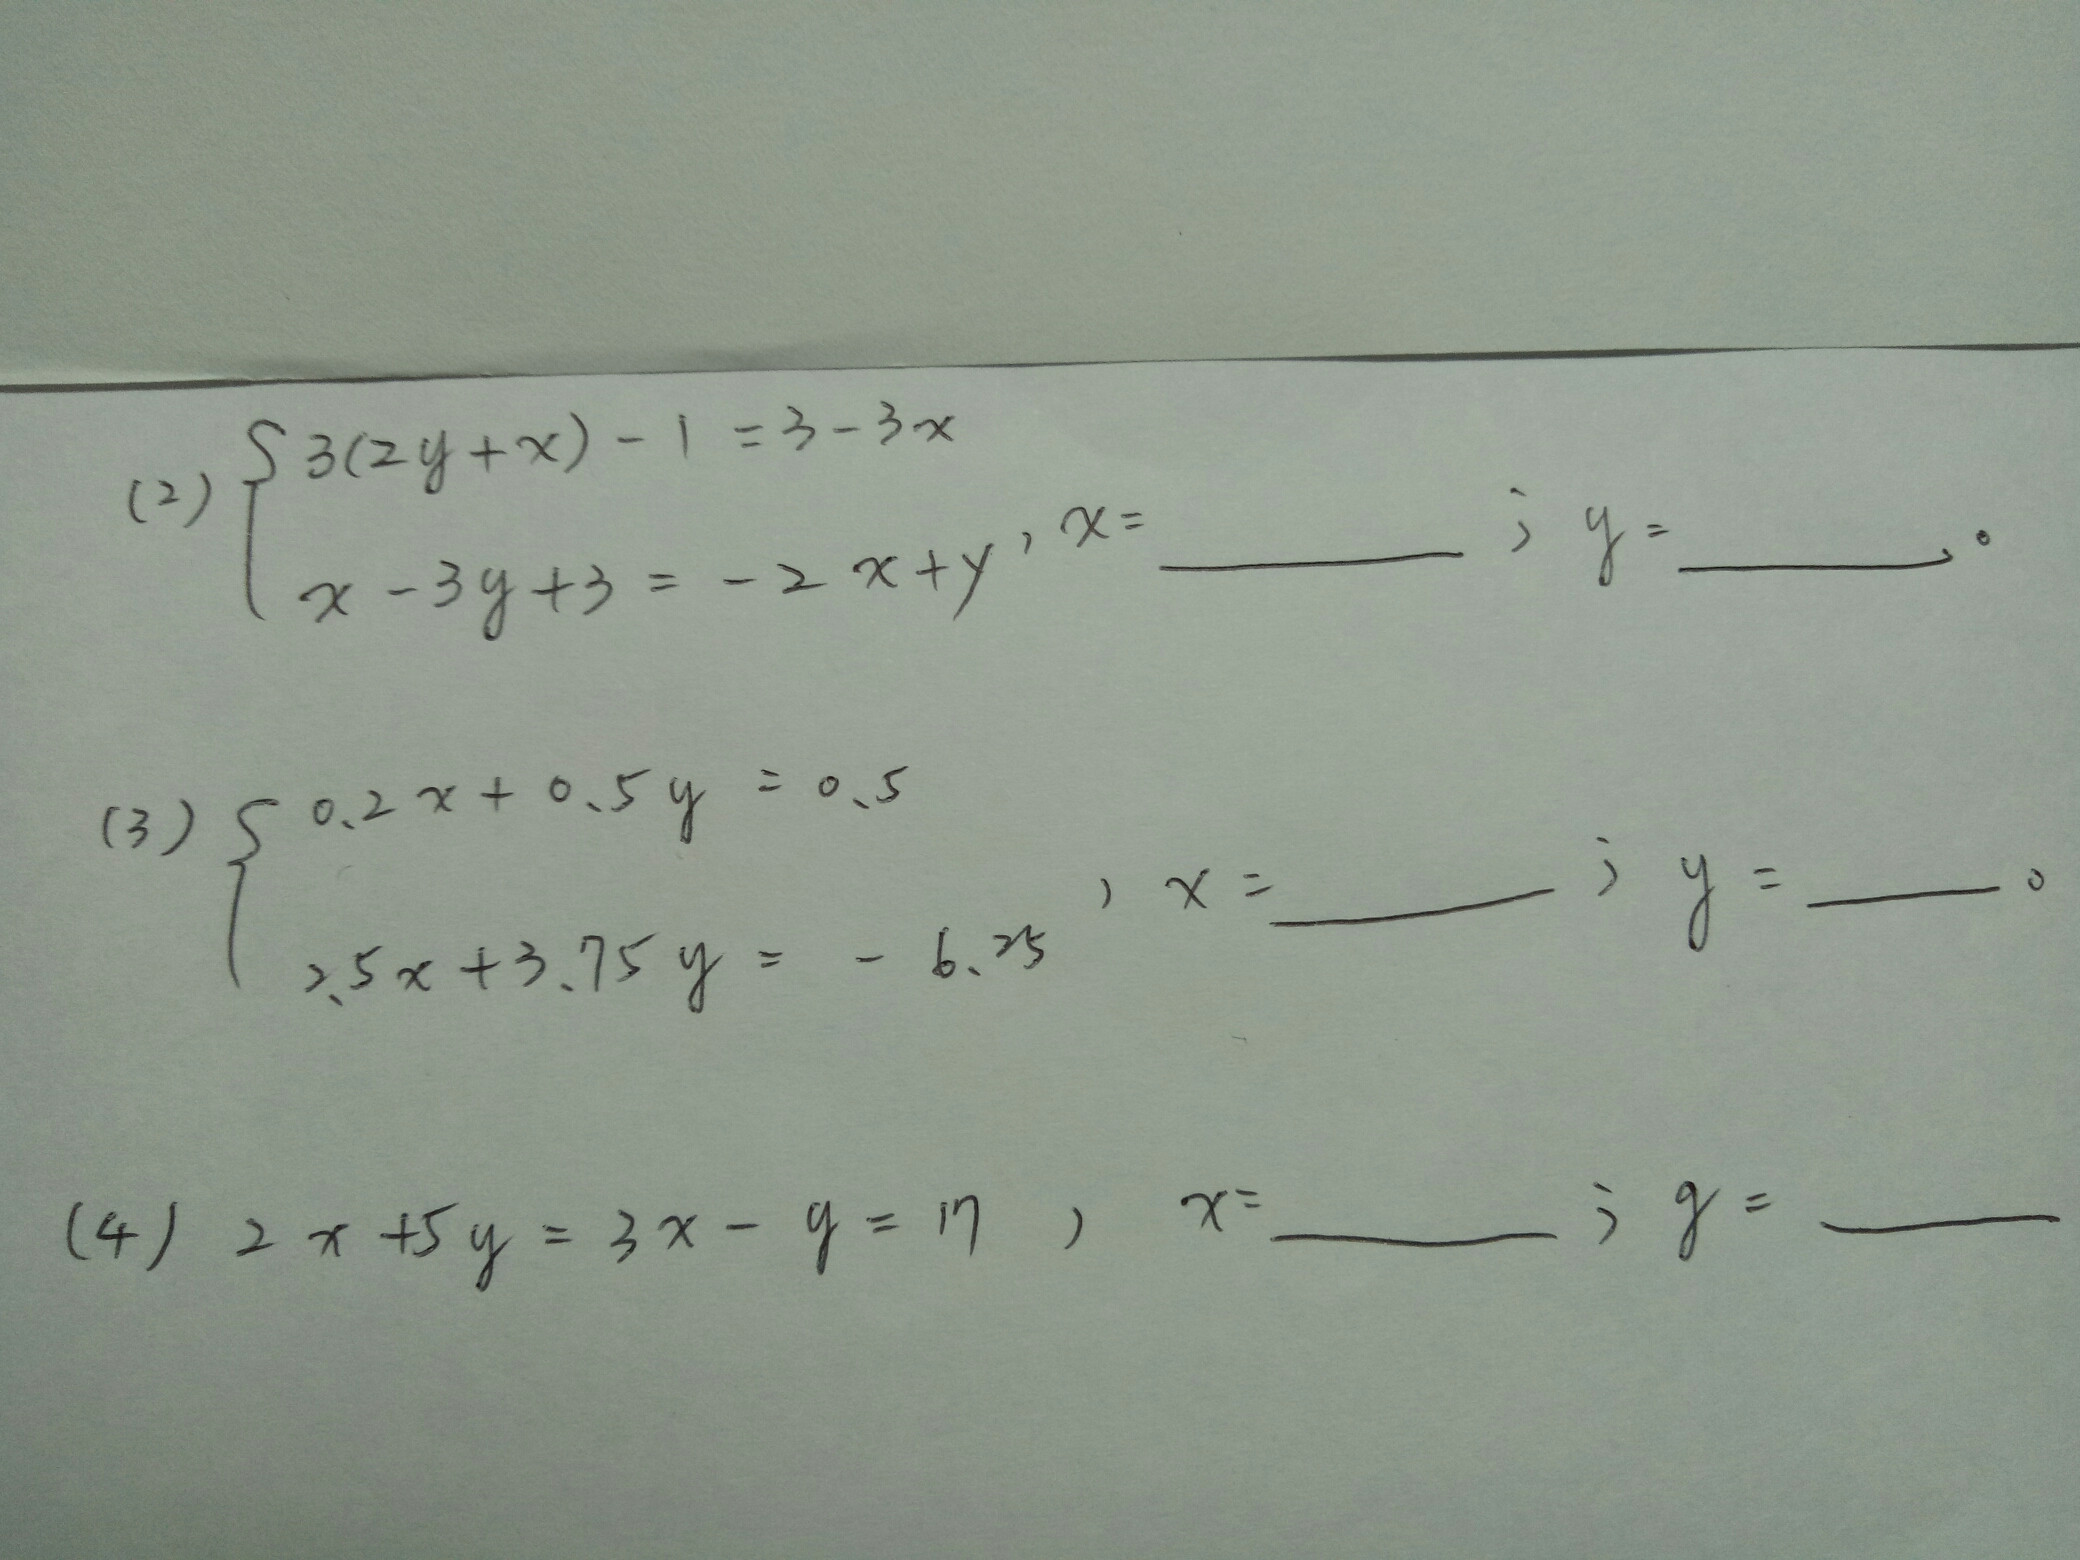 (2) { 3(2y+x)-1=3-3x
x-3y+3=-2x+y, x=______; y=______。
(3) { 0.2x+0.5y=0.5
2.5x+3.75y=-6.25, x=______; y=____。
(4) 2x+5y=3x-y=17, x=______; y=____